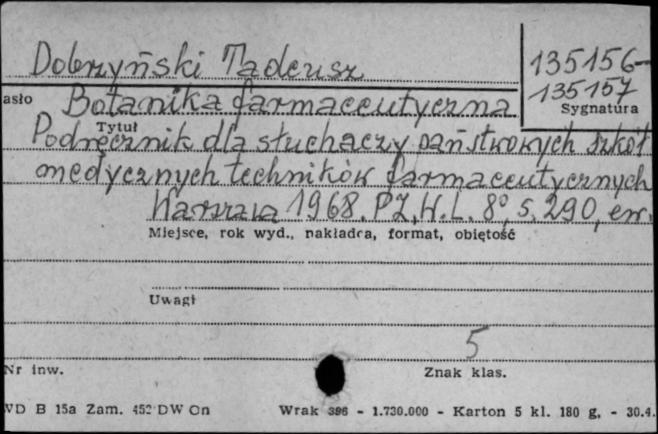 Dobrzyński Tadeusz
135156-
135157
Sygnatura
asło Botanika farmaceutyczna
Tytuł
Podręcznik dla słuchaczy państwowych szkół
medycznych techników farmaceutycznych
Warszawa 1968. PZ.W.L. 8°, s. 290, err.
Miejsce, rok wyd., nakładca, format, objętość
Uwagi
5
Nr inw.
Znak klas.
VD B 15a Zam. 452 DW On Wrak 396 - 1.730.000 - Karton 5 kl. 180 g, - 30.4.